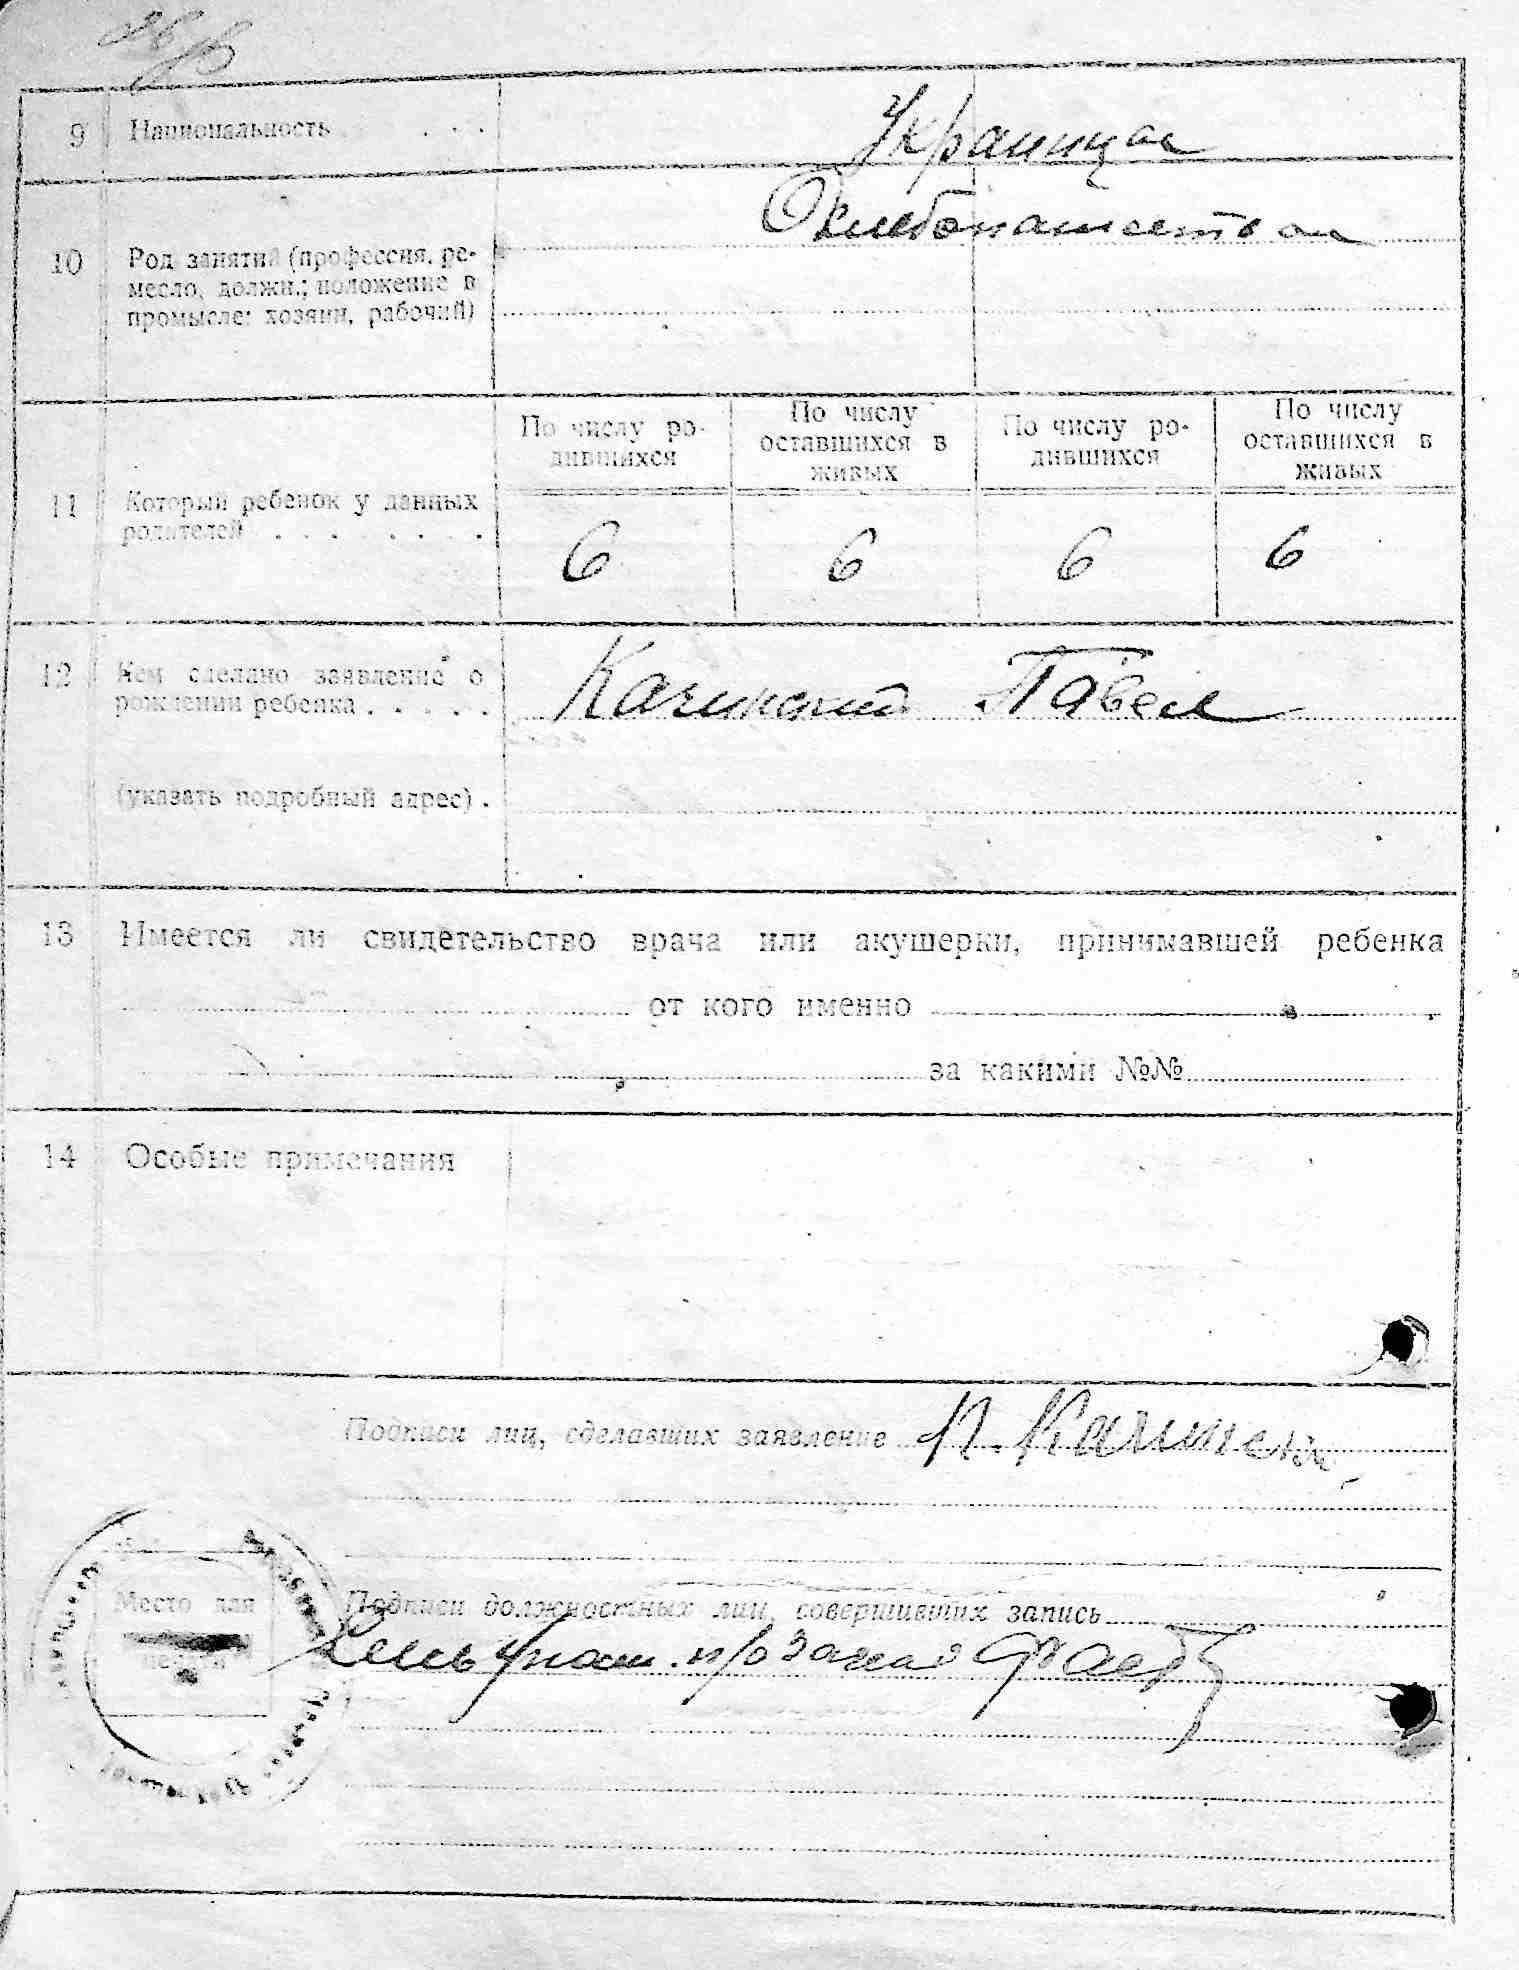 9 Национальность . . .
Украинцы
10 Род занятий (профессия, ре-
месло, должн.; положение в
промысле: хозяин, рабочий)
Хлебопашество
По числу ро-
дившихся
По числу
оставшихся в
живых
По числу ро-
дившихся
По числу
оставшихся в
живых
11 Который ребенок у данных
родителей . . . . . . . .
6 6 6 6
12 Кем сделано заявление о
рождении ребенка . . . . .
Качинский Павел
(указать подробный адрес) .
13 Имеется ли свидетельство врача или акушерки, принимавшей ребенка
от кого именно
за какими №№
14 Особые примечания
Подписи лиц, сделавших заявление П. Качинский
Место для
печати
Подписи должностных лиц, совершивших запись